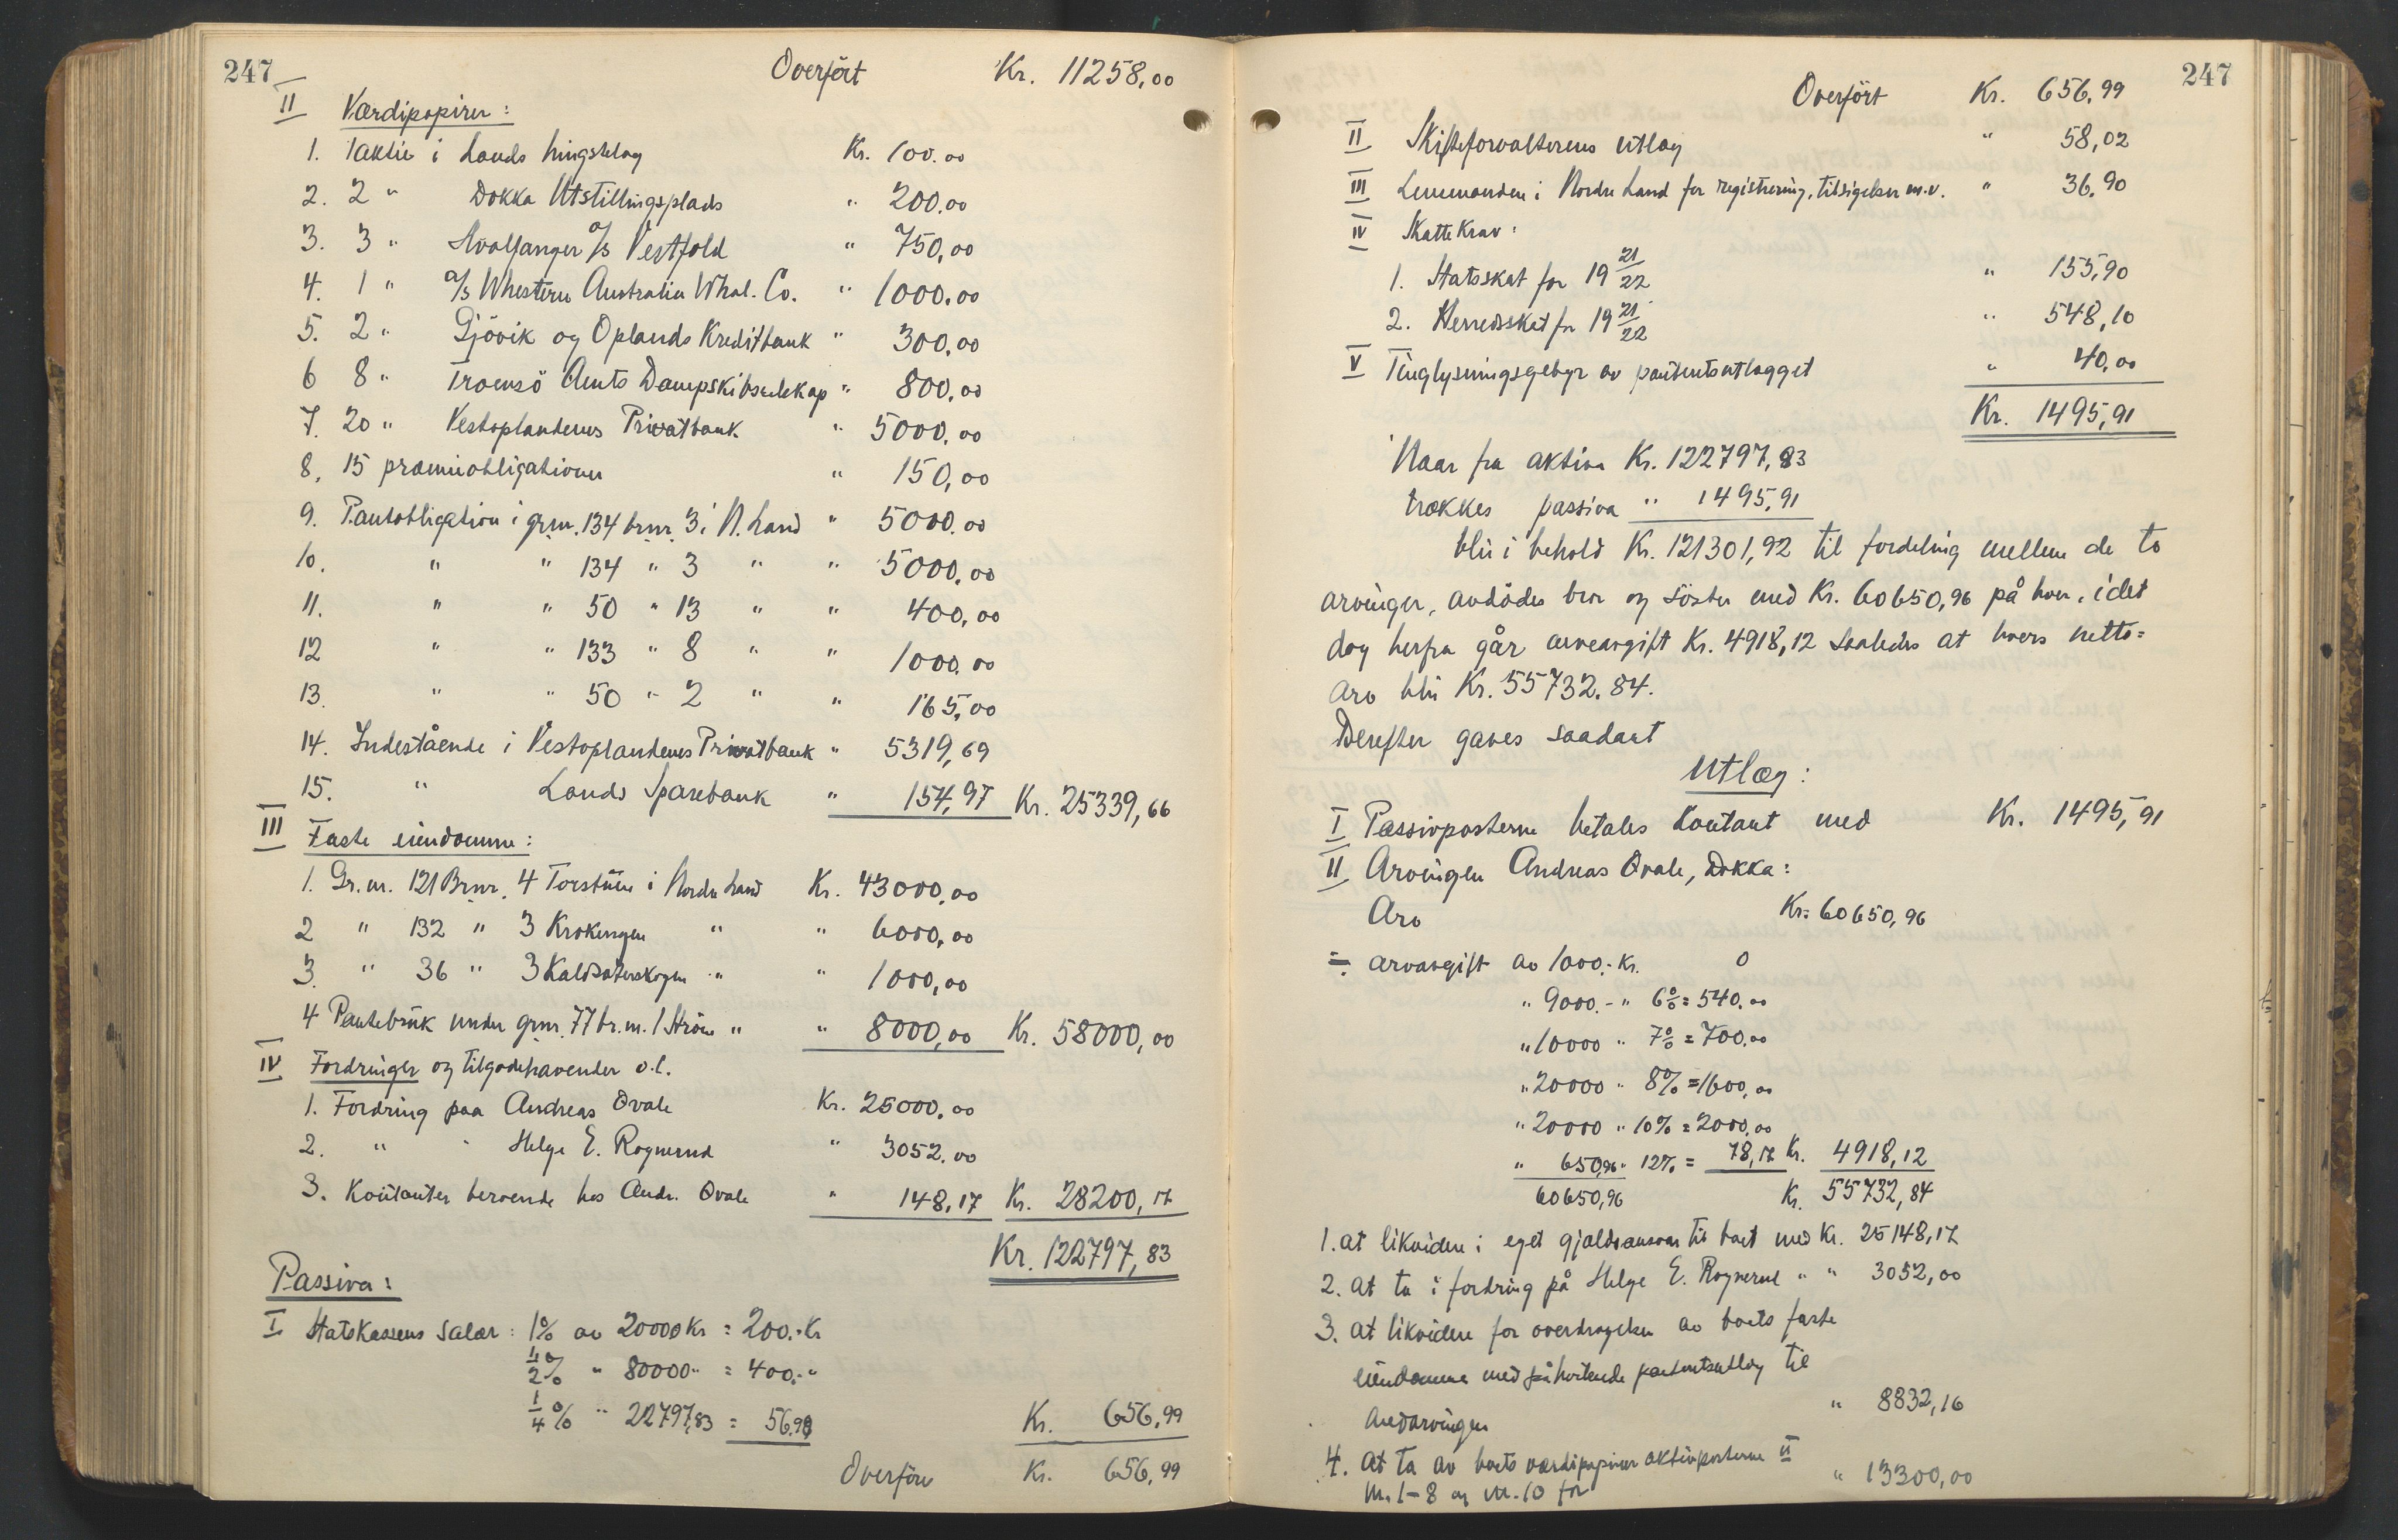 247
Overført Kr. 11258,00
II Værdipapirer:
1. 1 aktie i Lands hingstelag Kr. 100.00
2. 2 " Dokka Utstillingsplads " 200.00
3. 3 " Hvalfanger a/s Vestfold " 750,00
4. 1 " a/s Whestern Australia Whal. Co. " 1000.00
5. 2 " Gjövik og Oplands Kreditbank " 300,00
6 8 " Tromsö Amts Dampskibsselskap " 800,00
7. 20 " Vestoplandenes Privatbank " 5000.00
8. 15 præmieobligationer " 150,00
9. Pantobligation i grnr. 134 brnr. 3 i N. Land " 5000.00
10. " " 134 " 3 " " 5000,00
11. " " 50 " 13 " " 400,00
12 " " 133 " 8 " " 1000.00
13. " " 50 " 2 " " 165,00
14. Indestående i Vestoplandenes Privatbank " 5319,69
15. " Lands Sparebank " 154,97 Kr. 25339,66
III Faste eiendomme:
1. Gr.nr. 121 Brnr. 4 i Nordre Land Kr. 43000,00
2 " 132 " 3 Krokengen " " 6000,00
3. " 36 " 3 Kaldsæterskogen " " 1000,00
4 Pantebruk under grnr. 77 br.nr. 1 " " 8000,00 Kr. 58000,00
IV Fordringer og tilgodehavender o.l.
1. Fordring paa Andreas Ovale Kr. 25000,00
2. " " Helge E. Rognerud " 3052.00
3. Kontanter beroende hos Andr. Ovale " 148,17 Kr. 28200,17
Kr. 122797,83
Passiva:
I Statskassens salær: 1% av 20000 Kr = 200.- Kr
1/2% " 80000 " = 400.- "
1/4% " 22797,83 = 56.99 Kr. 656,99
Overføres Kr. 656,99
247
Overført Kr. 656,99
II Skifteforvalterens utlæg " 58,02
III Lensmanden i Nordre Land for registrering, tilsigelser m.v. " 36,90
IV Skattekrav:
1. Statsskat for 19 21/22 " 155,90
2. Herredsskat for 19 21/22 " 548,10
V Tinglysningsgebyr av panteutlægget " 40,00
Kr. 1495,91
Naar fra aktiva Kr. 122797,83
trækkes passiva " 1495,91
blir i behold Kr. 121301,92 til fordeling mellem de to
arvinger, avdödes bror og söster med Kr. 60650,96 på hver, idet
dog herfra går arveavgift Kr. 4918,12 saaledes at hvers netto-
arv blir Kr. 55732.84.
Derefter gaves saadant
Utlæg:
I Passivposterne betales kontant med Kr. 1495,91
II Arvingen Andreas Ovale, Dokka:
Arv Kr. 60650,96
÷ arvavgift av 1000.- Kr. 0
" 9000.- " 6% = 540.00
" 10000 " 7% = 700.00
" 20000 " 8% = 1600,00
" 20000 " 10% = 2000.00
" 650,96 " 12% = 78,12 Kr. 4918,12
60650,96 Kr. 55732,84
1. at likvidere i eget gjældsansvar til boet med Kr. 25148,17
2. at ta i fordring på Helge E. Rognerud " " 3052,00
3. at likvidere for overdragelsen av boets faste
eiendomme med påheftende til
medarvingen " 8832,16
4. at ta av boets værdipapirer aktivposterne II
nr. 1-8 og nr. 10 for " 13300,00